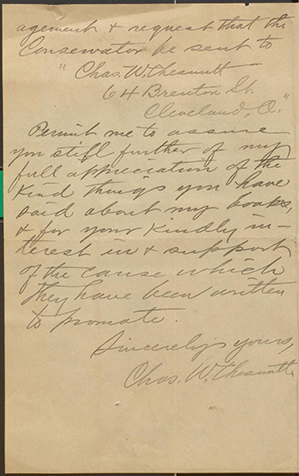 agement & request that the
Conservator be sent to
"Chas. W. Chesnutt
64 Brenton St.
Cleveland, O."
Permit me to assure
you still further of my
full appreciation of the
kind things you have
said about my books,
& for your kindly in-
terest in & support
of the cause which
they have been written
to promote.
Sincerely yours,
Chas. W. Chesnutt.